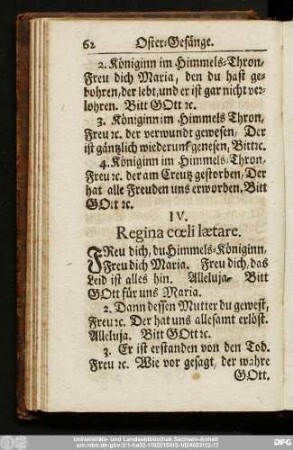 62 Oster-Gesänge.
2. Königinn im Himmels-Thron,
Freu dich Maria, den du hast ge-
bohren, der lebt, und er ist gar nicht ver-
lohren. Bitt GOtt ꝛc.
3. Königinn im Himmels Thron,
Freu ꝛc. der verwundt gewesen, Der
ist gäntzlich wiederum genesen, Bitt ꝛc.
4. Königinn im Himmels-Thron,
Freu ꝛc. der am Creutz gestorben, Der
hat alle Freuden uns erworben, Bitt
GOtt ꝛc.
IV.
Regina cœli lætare.
FReu dich, du Himmels-Königinn,
Freu dich Maria. Freu dich, das
Leid ist alles hin. Alleluja. Bitt
GOtt für uns Maria.
2. Dann dessen Mutter du gewest,
Freu ꝛc. Der hat uns allesamt erlöst.
Alleluja. Bitt GOtt ꝛc.
3. Er ist erstanden von den Tod.
Freu ꝛc. Wie vor gesagt, der wahre
GOtt.
Universitäts- und Landesbibliothek Sachsen-Anhalt
DFG